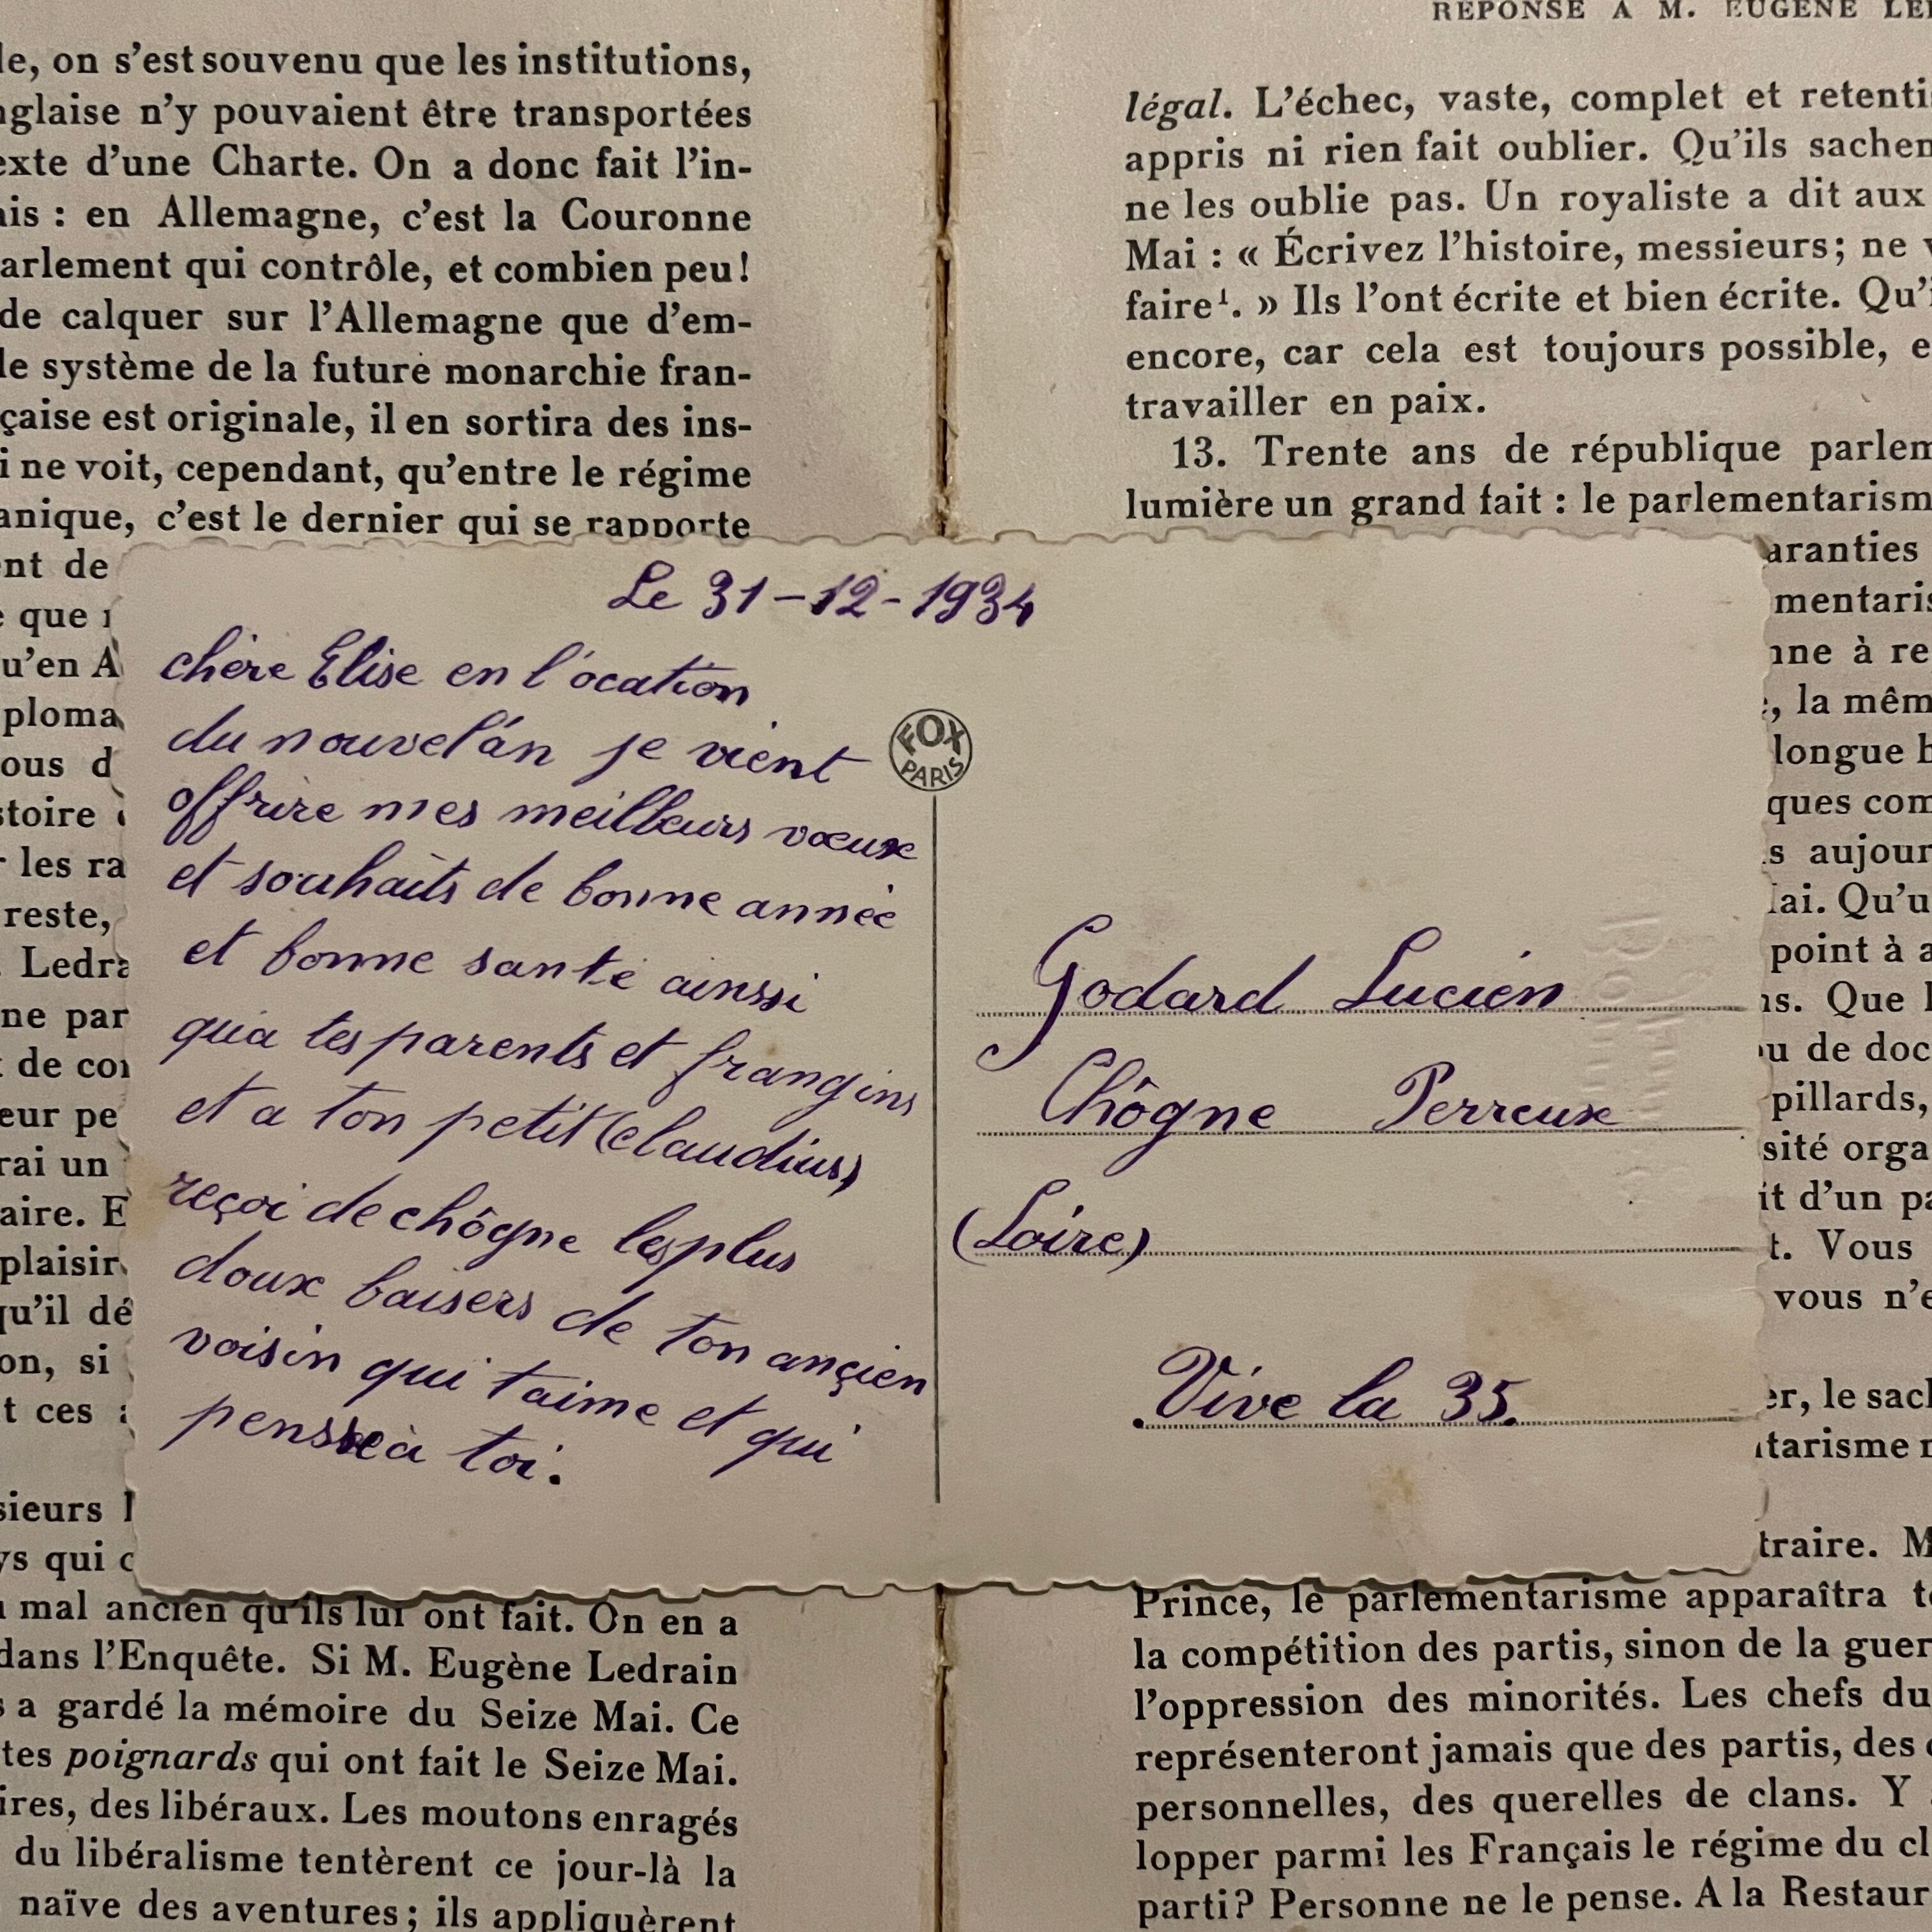 le, on s'est souvenu que les institutions,
nglaise n'y pouvaient être transportées
exte d'une Charte. On a donc fait l'in-
ais : en Allemagne, c'est la Couronne
arlement qui contrôle, et combien peu!
de calquer sur l'Allemagne que d'em-
le système de la future monarchie fran-
çaise est originale, il en sortira des ins-
i ne voit, cependant, qu'entre le régime
anique, c'est le dernier qui se rapporte
ent de
e que
u'en A
ploma
ous d
stoire
r les ra
reste,
. Ledra
ne par
t de con
eur pe
rai un
aire. E
plaisir
qu'il dé
on, si
t ces a
sieurs
ys qui c
u mal ancien qu'ils lui ont fait. On en a
dans l'Enquête. Si M. Eugène Ledrain
s a gardé la mémoire du Seize Mai. Ce
tes poignards qui ont fait le Seize Mai.
ires, des libéraux. Les moutons enragés
du libéralisme tentèrent ce jour-là la
naïve des aventures; ils appliquèrent
Le 31-12-1934
chère Elise en l'ocation
du nouvel'an je vient
offrire mes meilleurs vœux
et souhaits de bonne année
et bonne santé ainsi
qu'a tes parents et frangins
et a ton petit (claudius)
reçoi de chôgne les plus
doux baisers de ton ançien
voisin qui t'aime et qui
pensse à toi.
FOX
PARIS
Godard Lucien
Chôgne Perreux
(Loire)
Vive la 35.
RÉPONSE A M. EUGÈNE LE
légal. L'échec, vaste, complet et retenti
appris ni rien fait oublier. Qu'ils sachen
ne les oublie pas. Un royaliste a dit aux
Mai : « Écrivez l'histoire, messieurs; ne v
faire¹. » Ils l'ont écrite et bien écrite. Qu'i
encore, car cela est toujours possible, e
travailler en paix.
13. Trente ans de république parlem
lumière un grand fait : le parlementarism
aranties
mentaris
nne à re
, la mêm
longue h
ques com
s aujour
Mai. Qu'u
point à a
ns. Que l
u de doc
pillards,
sité orga
it d'un pa
t. Vous
vous n'e
er, le sacl
tarisme n
traire. M
Prince, le parlementarisme apparaîtra t
la compétition des partis, sinon de la guer
l'oppression des minorités. Les chefs du
représenteront jamais que des partis, des
personnelles, des querelles de clans. Y
lopper parmi les Français le régime du cl
parti? Personne ne le pense. A la Restaur